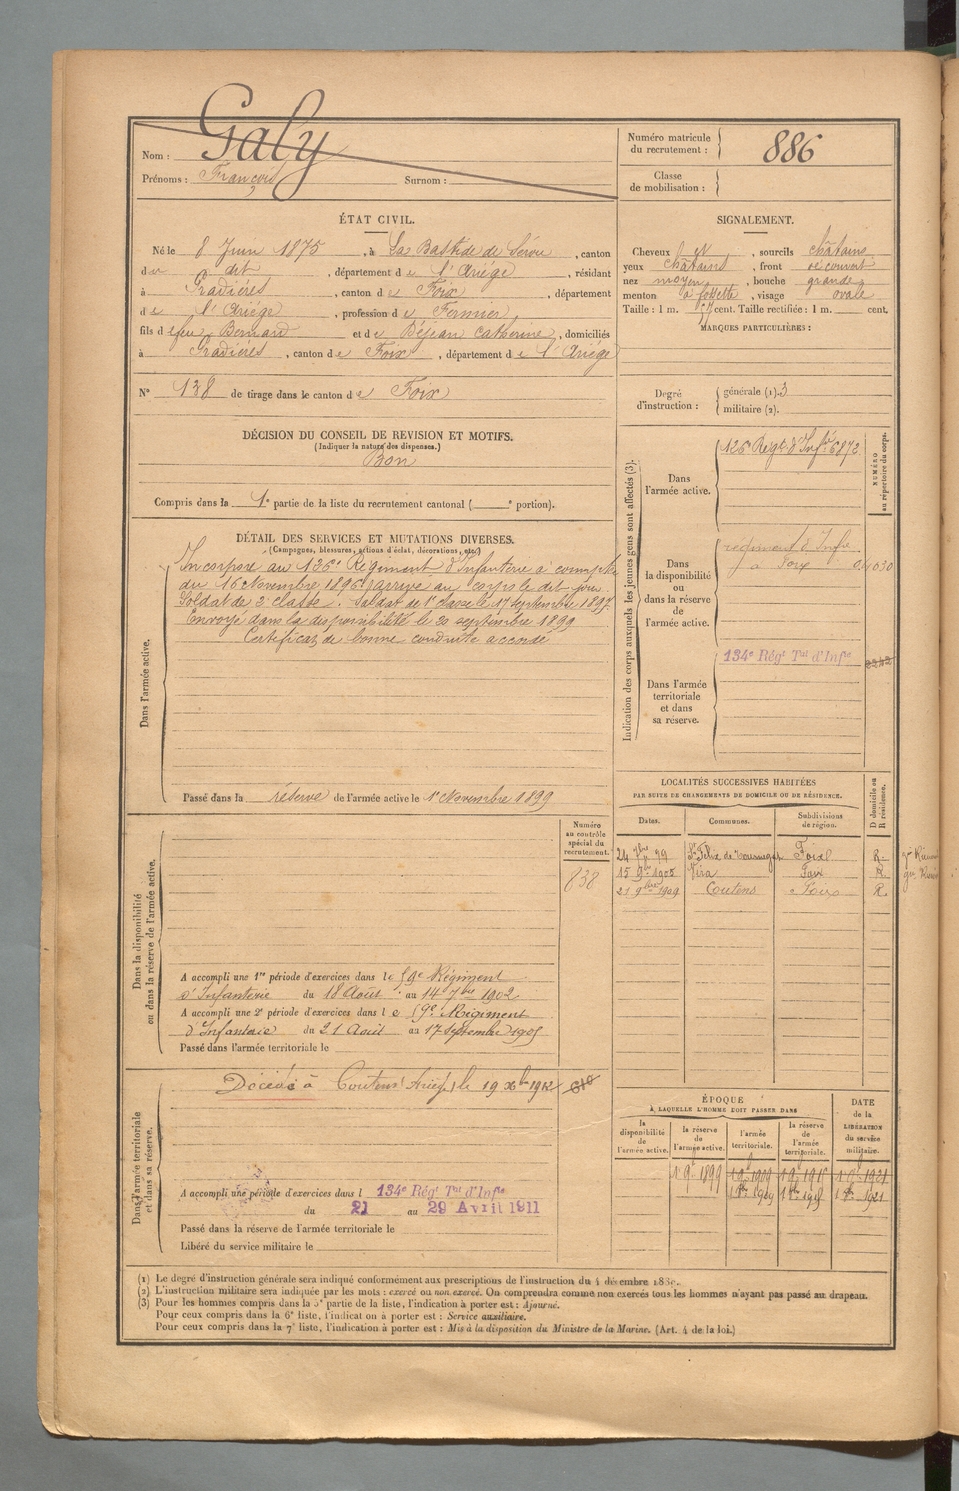 Nom : Galy
Prénoms : François Surnom :
Numéro matricule du recrutement : 886
Classe de mobilisation :
ÉTAT CIVIL.
Né le 8 Juin 1875, à La Bastide de Sérou, canton
du dit, département de l'Ariège, résidant
à Pradières, canton de Foix, département
de l'Ariège, profession de Fermier,
fils de feu Bernard et de Déjean Catherine, domiciliés
à Pradières, canton de Foix, département de l'Ariège
N° 138 de tirage dans le canton de Foix
SIGNALEMENT.
Cheveux et, sourcils châtains
yeux châtains, front découvert
nez moyen, bouche grande
menton à fossette, visage ovale
Taille : 1 m. cent. Taille rectifiée : 1 m. cent.
MARQUES PARTICULIÈRES :
Degré d'instruction : générale (1). 3
militaire (2).
DÉCISION DU CONSEIL DE REVISION ET MOTIFS.
(Indiquer la nature des dispenses.)
Bon
Compris dans la 1e partie de la liste du recrutement cantonal ( e portion).
DÉTAIL DES SERVICES ET MUTATIONS DIVERSES.
(Campagnes, blessures, actions d'éclat, décorations, etc.)
Dans l'armée active.
Incorporé au 126e Régiment d'Infanterie à compter
du 16 Novembre 1896, arrivé au corps le dit jour
Soldat de 2e classe. Soldat de 1e classe le 17 septembre 1897.
Envoyé dans la disponibilité le 20 septembre 1899
Certificat de bonne conduite accordé
Passé dans la réserve de l'armée active le 1er Novembre 1899
Indication des corps auxquels les jeunes gens sont affectés (3).
NUMÉRO au répertoire du corps.
Dans l'armée active.
126e Régt d'Infie 6872
Dans la disponibilité ou dans la réserve de l'armée active.
régiment d'Infie
à Foix
Dans l'armée territoriale et dans sa réserve.
134e Régt Tal d'Infie
LOCALITÉS SUCCESSIVES HABITÉES
PAR SUITE DE CHANGEMENTS DE DOMICILE OU DE RÉSIDENCE.
Dates. Communes. Subdivisions de région. D domicile ou R résidence.
24 7bre 99 St Félix de Tournegat Foix R.
15 9bre 1905 Vira Foix R.
21 9bre 1909 Coutens Foix R.
Dans la disponibilité ou dans la réserve de l'armée active.
Numéro au contrôle spécial du recrutement.
838
A accompli une 1re période d'exercices dans le 59e Régiment
d'Infanterie du 18 Août au 14 7bre 1902
A accompli une 2e période d'exercices dans le 59e Régiment
d'Infanterie du 21 Août au 17 septembre 1905
Passé dans l'armée territoriale le
Dans l'armée territoriale et dans sa réserve.
Décédé à Coutens (Ariège) le 19 Xbre 1912
A accompli une période d'exercices dans l 134e Régt Tal d'Infie
du 21 au 29 Avril 1911
Passé dans la réserve de l'armée territoriale le
Libéré du service militaire le
ÉPOQUE
À LAQUELLE L'HOMME DOIT PASSER DANS
la disponibilité de l'armée active. la réserve de l'armée active. l'armée territoriale. la réserve de l'armée territoriale.
DATE de la LIBÉRATION du service militaire.
(1) Le degré d'instruction générale sera indiqué conformément aux prescriptions de l'instruction du 4 décembre
(2) L'instruction militaire sera indiquée par les mots : exercé ou non exercé. On comprendra comme non exercés tous les hommes n'ayant pas passé au drapeau.
(3) Pour les hommes compris dans la 5e partie de la liste, l'indication à porter est : Ajourné.
Pour ceux compris dans la 6e liste, l'indication à porter est : Service auxiliaire.
Pour ceux compris dans la 7e liste, l'indication à porter est : Mis à la disposition du Ministre de la Marine. (Art. 4 de la loi.)